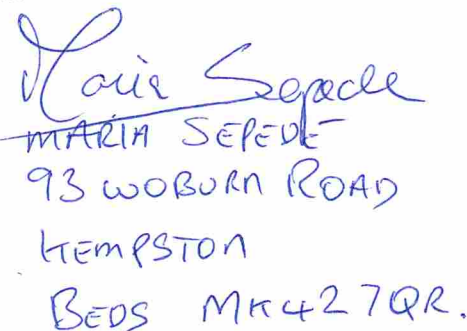 Maria Sepede
MARIA SEPEDE
93 WOBURN ROAD
KEMPSTON
BEDS MK42 7QR.